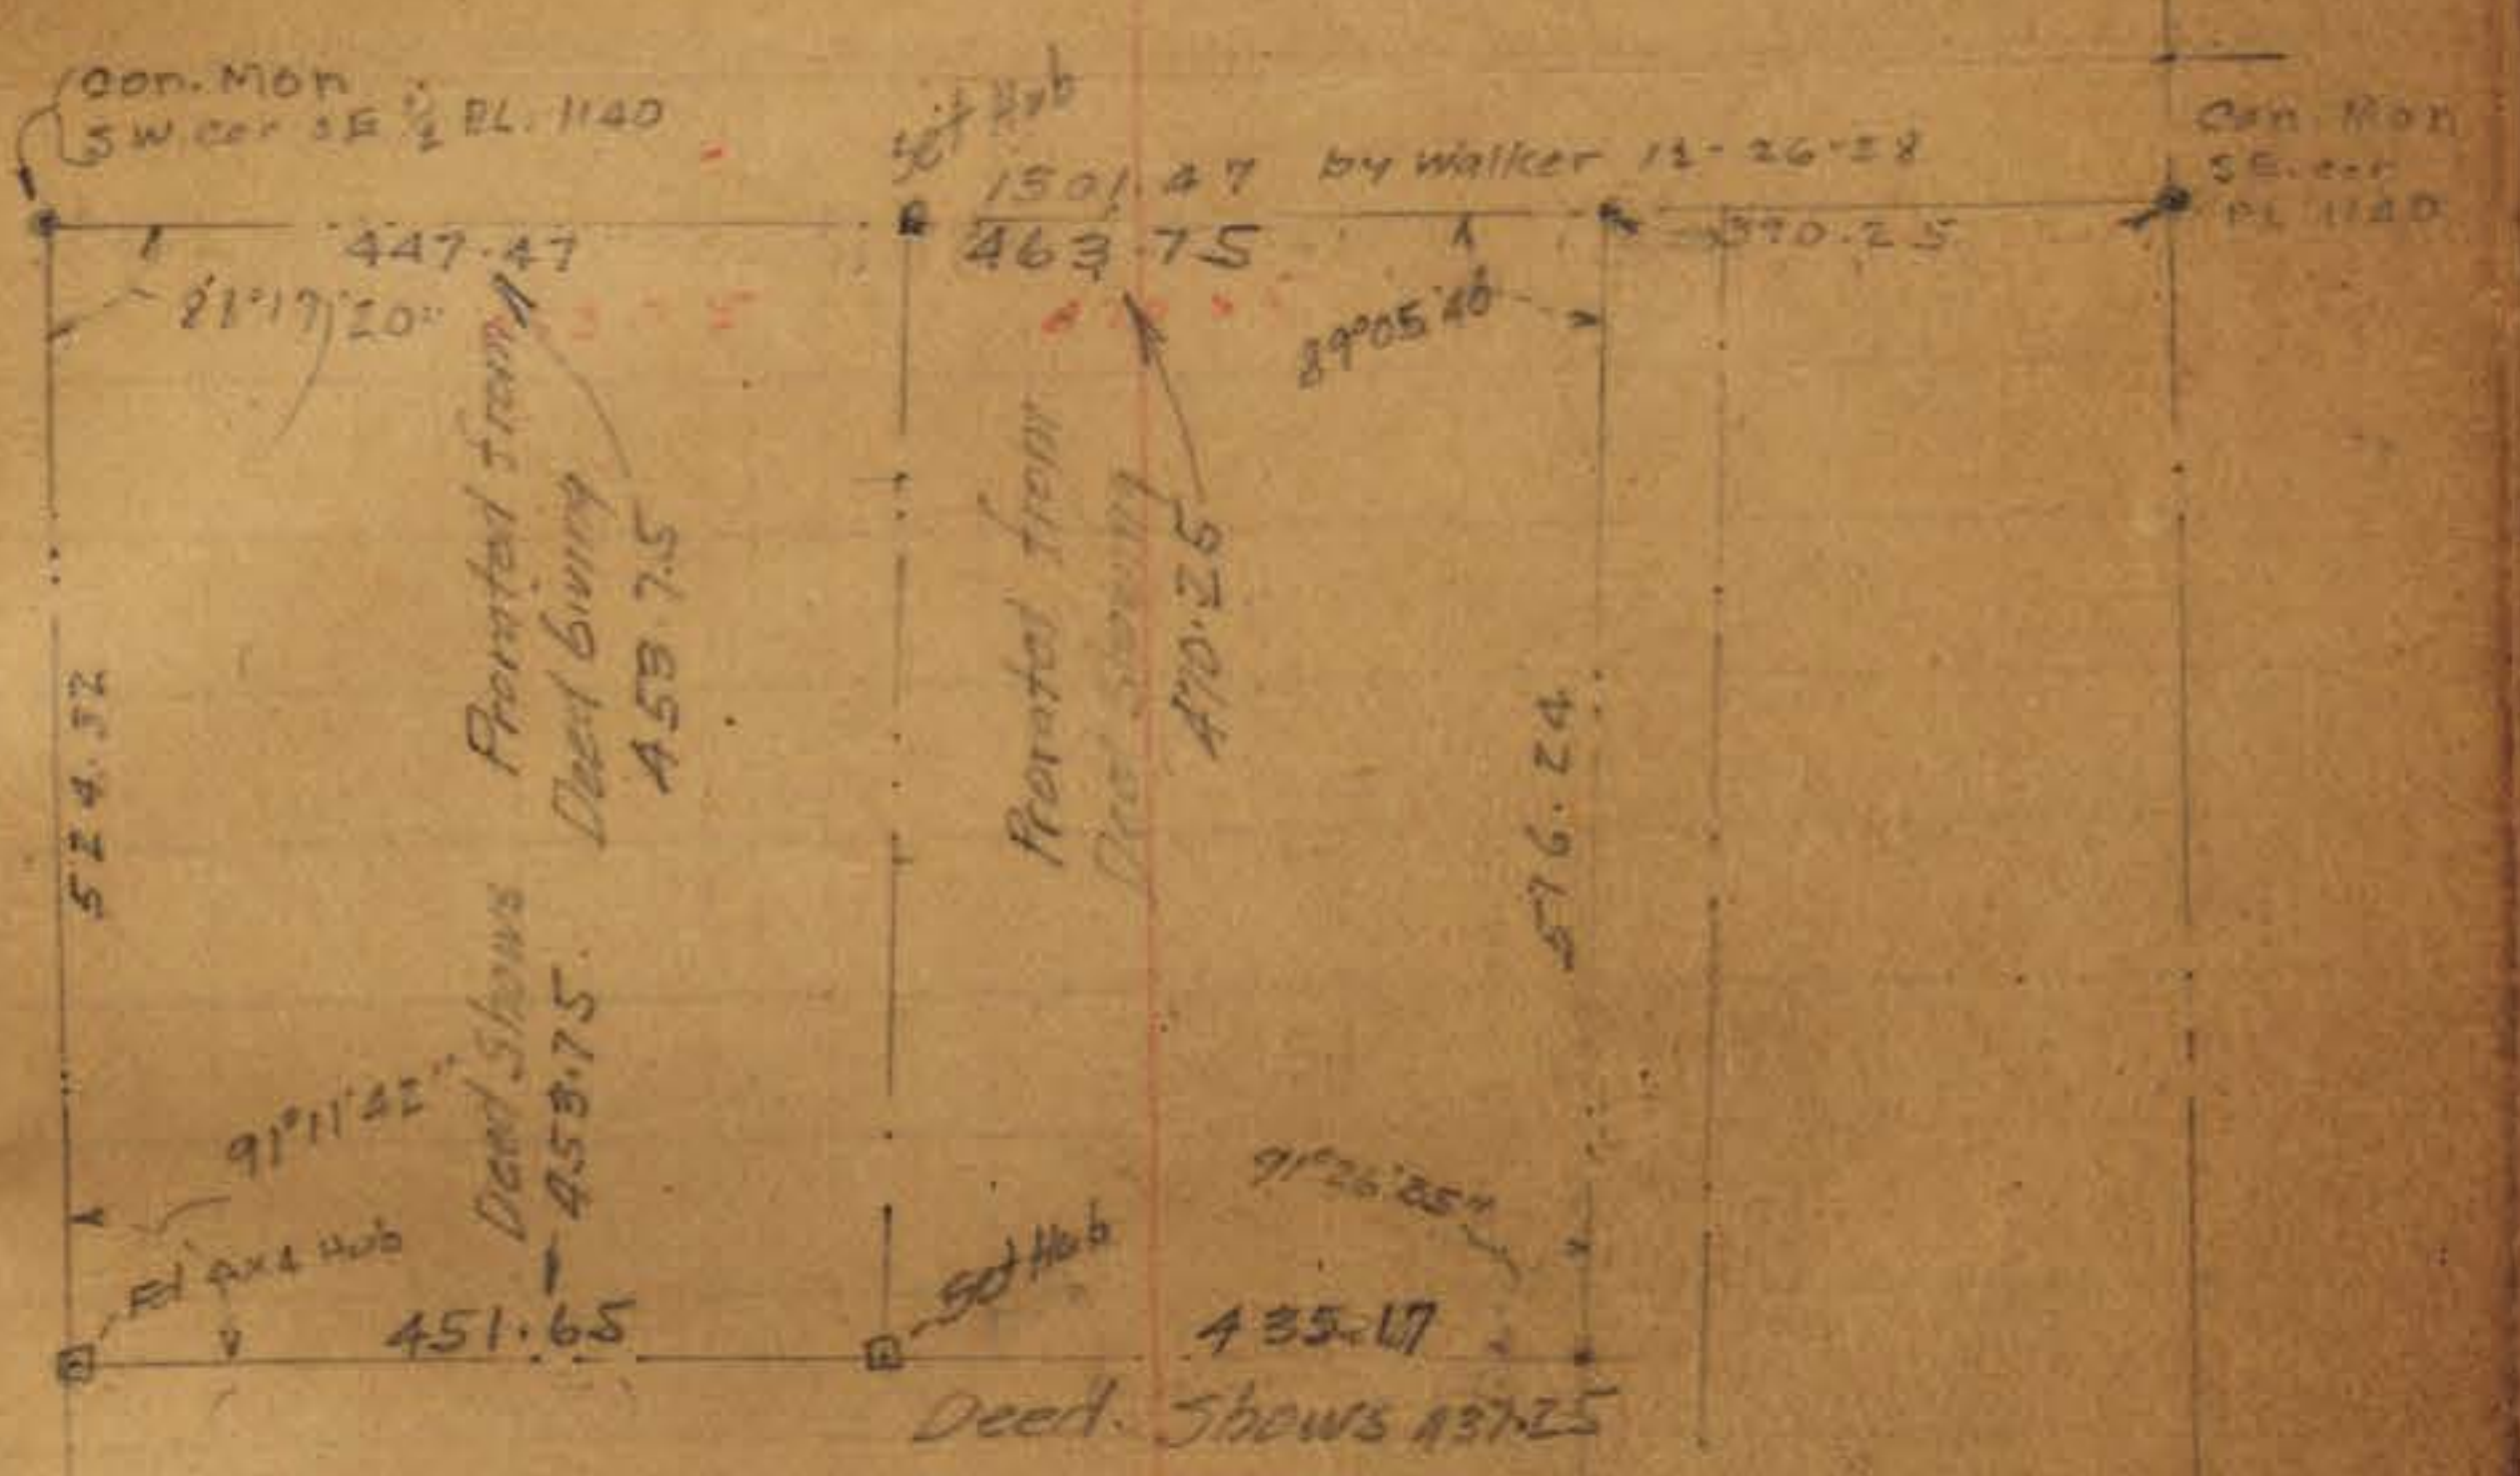 Con. Mon
SW cor SE ½ PL. 1140
Set Hub
1301.47
by Walker 12-26-28
Con. Mon
SE. cor
PL 1140
447.47
463.75
390.25
81°17'20"
89°05'40
Prorated from
Deed Giving
453.75
Prorated from
Deed Showing
470.25
524.52
576.24
Deed Shows
453.75
91°11'42"
Fd 4x4 Hub
451.65
Set Hub
91°26'35"
435.17
Deed. Shows 437.25